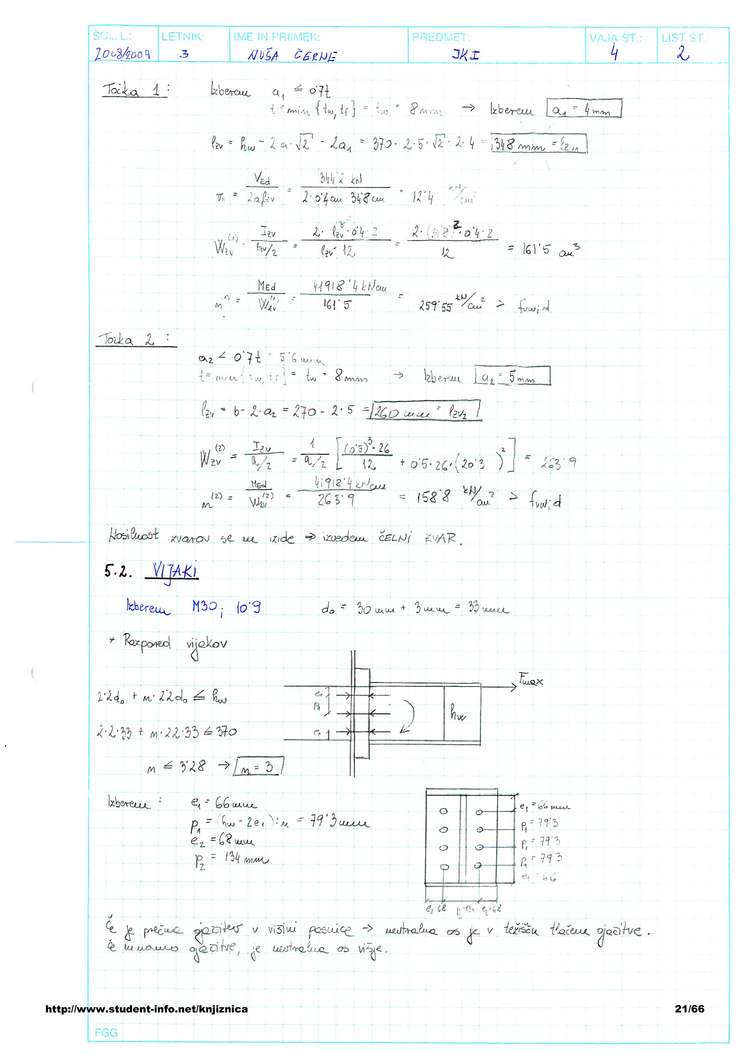 ŠOL. L.: LETNIK: IME IN PRIIMEK: PREDMET: VAJA ŠT.: LIST ŠT.
2008/2009 3 NUŠA ČERNE JKI 4 2
Točka 1:
Izberem a₁ ≤ 0'7t
t = min {tw, tf} = tw = 8mm → Izberem a₁ = 4mm
lzv = hw - 2·a·√2 - 2a₁ = 370 - 2·5·√2 - 2·4 = 348 mm = lzv₁
VEd / 2alzv = 344'2 kN / 2·0'4cm·34'8cm = 12'4 kN/cm²
Wzv⁽¹⁾ = Izv / lzv/2 = 2·lzv³·0'4·2 / lzv·12 = 12 = 161'5 cm³
MEd / Wzv⁽¹⁾ = 41918'4 kNcm / 161'5 = 259'55 kN/cm² > fvw,d
Točka 2:
a₂ < 0'7t = 5'6 mm
t = min {tw, tf} = tw = 8mm → Izberem a₂ = 5mm
lzv = b - 2·a₂ = 270 - 2·5 = 260 mm = lzv₂
Wzv⁽²⁾ = Izv / h/2 = 1 / a/2 [ (0'5)³·26 / 12 + 0'5·26·(20'3)² ] = 263'9
n⁽²⁾ = MEd / Wzv⁽²⁾ = 41918'4 kNcm / 263'9 = 158'8 kN/cm² > fvw,d
Nosilnost zvarov se ne izide → izvedem ČELNI ZVAR.
5.2. VIJAKI
Izberem M30; 10'9 d₀ = 30mm + 3mm = 33mm
* Razpored vijakov
Fmax
2·2d₀ + n·2'2d₀ ≤ hw
e₁
P₁
hw
2·2·33 + n·2'2·33 ≤ 370
e₁
n ≤ 3'28 → n = 3
Izberem: e₁ = 66mm
p₁ = (hw - 2e₁):n = 79'3mm
e₂ = 68mm
p₂ = 134 mm
e₁ = 66mm
p₁ = 79'3
p₁ = 79'3
p₁ = 79'3
e₁ = 66
e₂=68 p₂=134 e₂=68
Če je prečna ojačitev v višini pasnice → nevtralna os je v težišču tlačene ojačitve.
Če nimamo ojačitve, je nevtralna os višje.
http://www.student-info.net/knjiznica 21/66
FGG